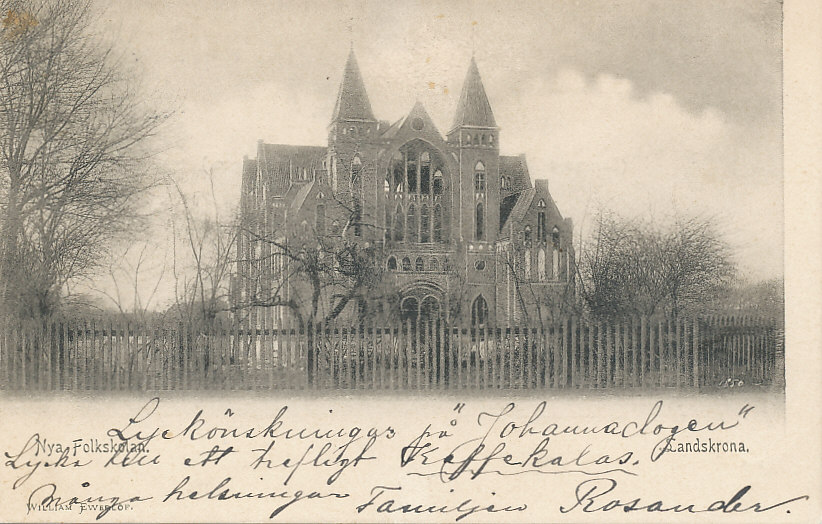 1850
Lyckönskningar på "Johannadagen"
Nya Folkskolan. Landskrona.
Lycka till ett trefligt Kaffekalas.
Många helsningar Familjen Rosander.
WILLIAM EWERLÖF.